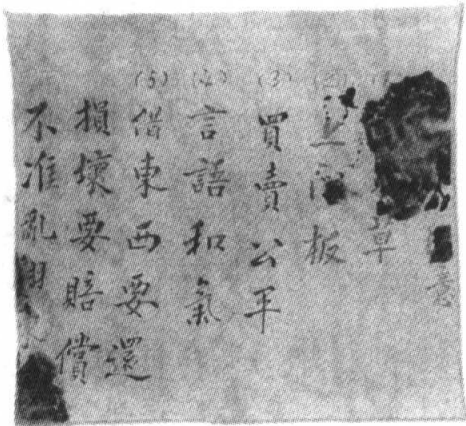 意
草
(2)上門板
(3)買賣公平
(4)言語和氣
(5)借東西要還
損壞要賠償
不准亂